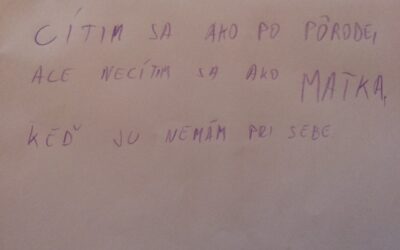 CÍTIM SA AKO PO PÔRODE,
ALE NECÍTIM SA AKO MATKA,
KEĎ JU NEMÁM PRI SEBE